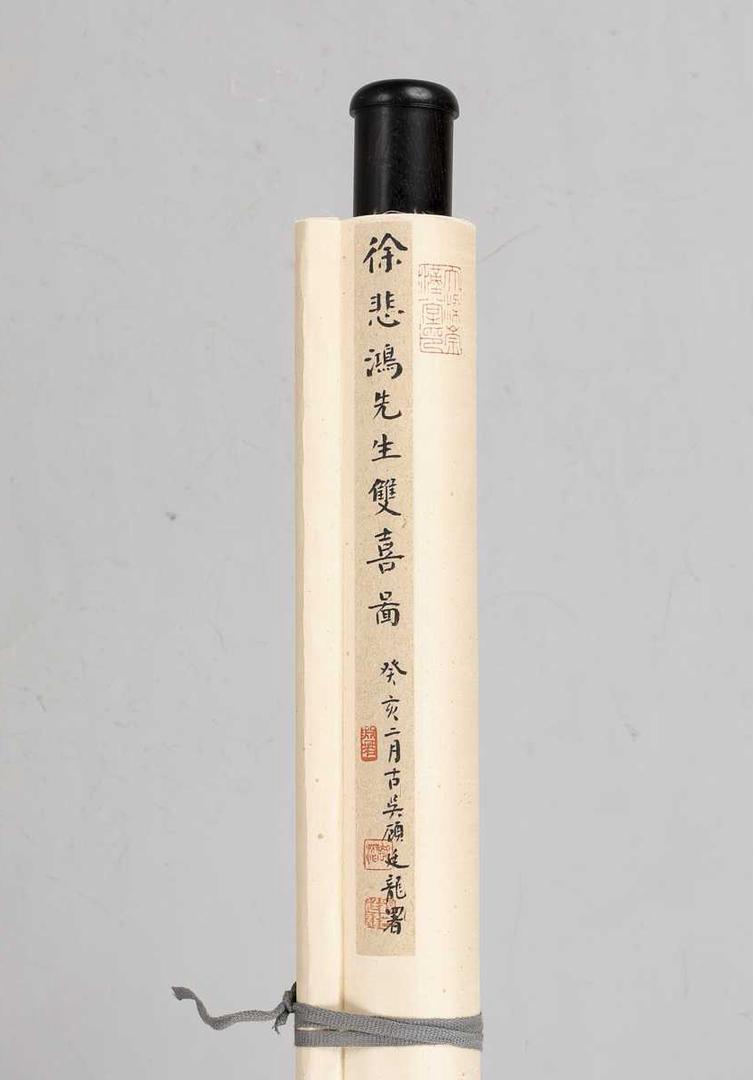 徐悲鴻先生雙喜啚
癸亥二月古吳顧廷龍署